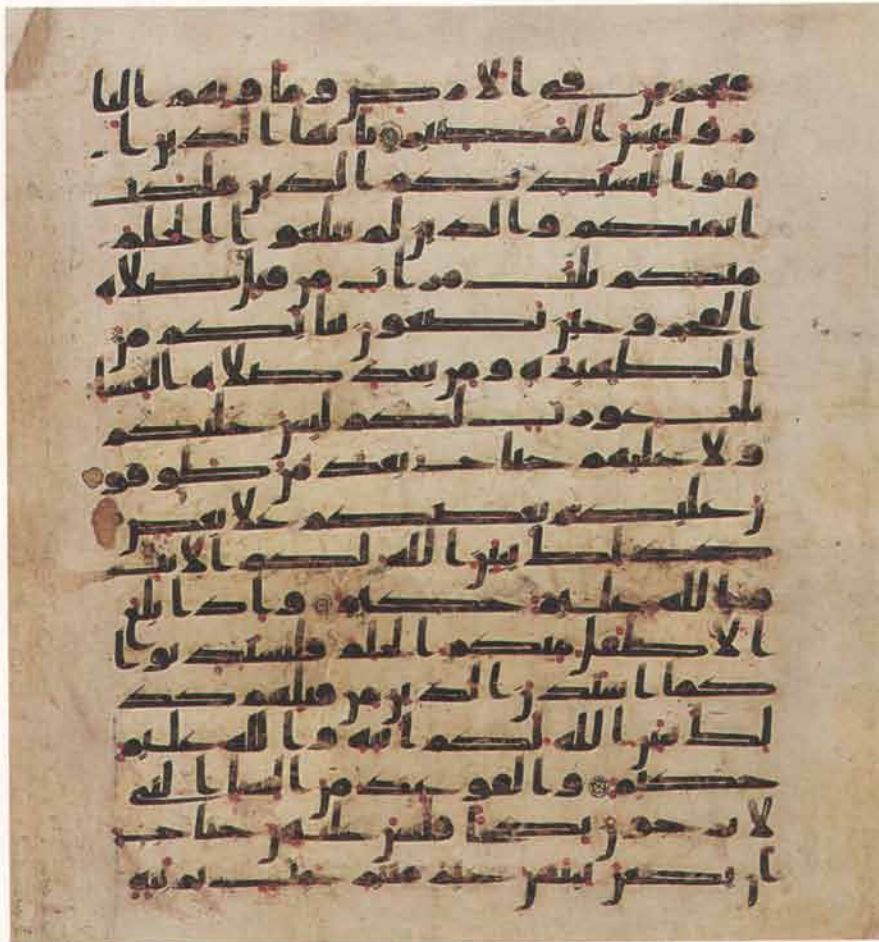 معجزين في الارض وماويهم النا
ر ولبيس المصير يايها الذين ا
منوا ليستذنكم الذين ملكت
ايمنكم والذين لم يبلغوا الحلم
منكم ثلث مرات من قبل صلاه
الفجر وحين تضعون ثيابكم من
الظهيره ومن بعد صلاه العشا
ثلث عورت لكم ليس عليكم
ولا عليهم جناح بعدهن طوفو
ن عليكم بعضكم علا بعض
كذلك يبين الله لكم الايت
والله عليم حكيم واذا بلغ
الاطفل منكم الحلم فليستذنوا
كما استذن الذين من قبلهم كذ
لك يبين الله لكم ايته والله عليم
حكيم والقوعد من النسا التي
لا يرجون نكحا فليس عليهن جناح
ان يضعن ثيبهن غير متبرجت بزينه